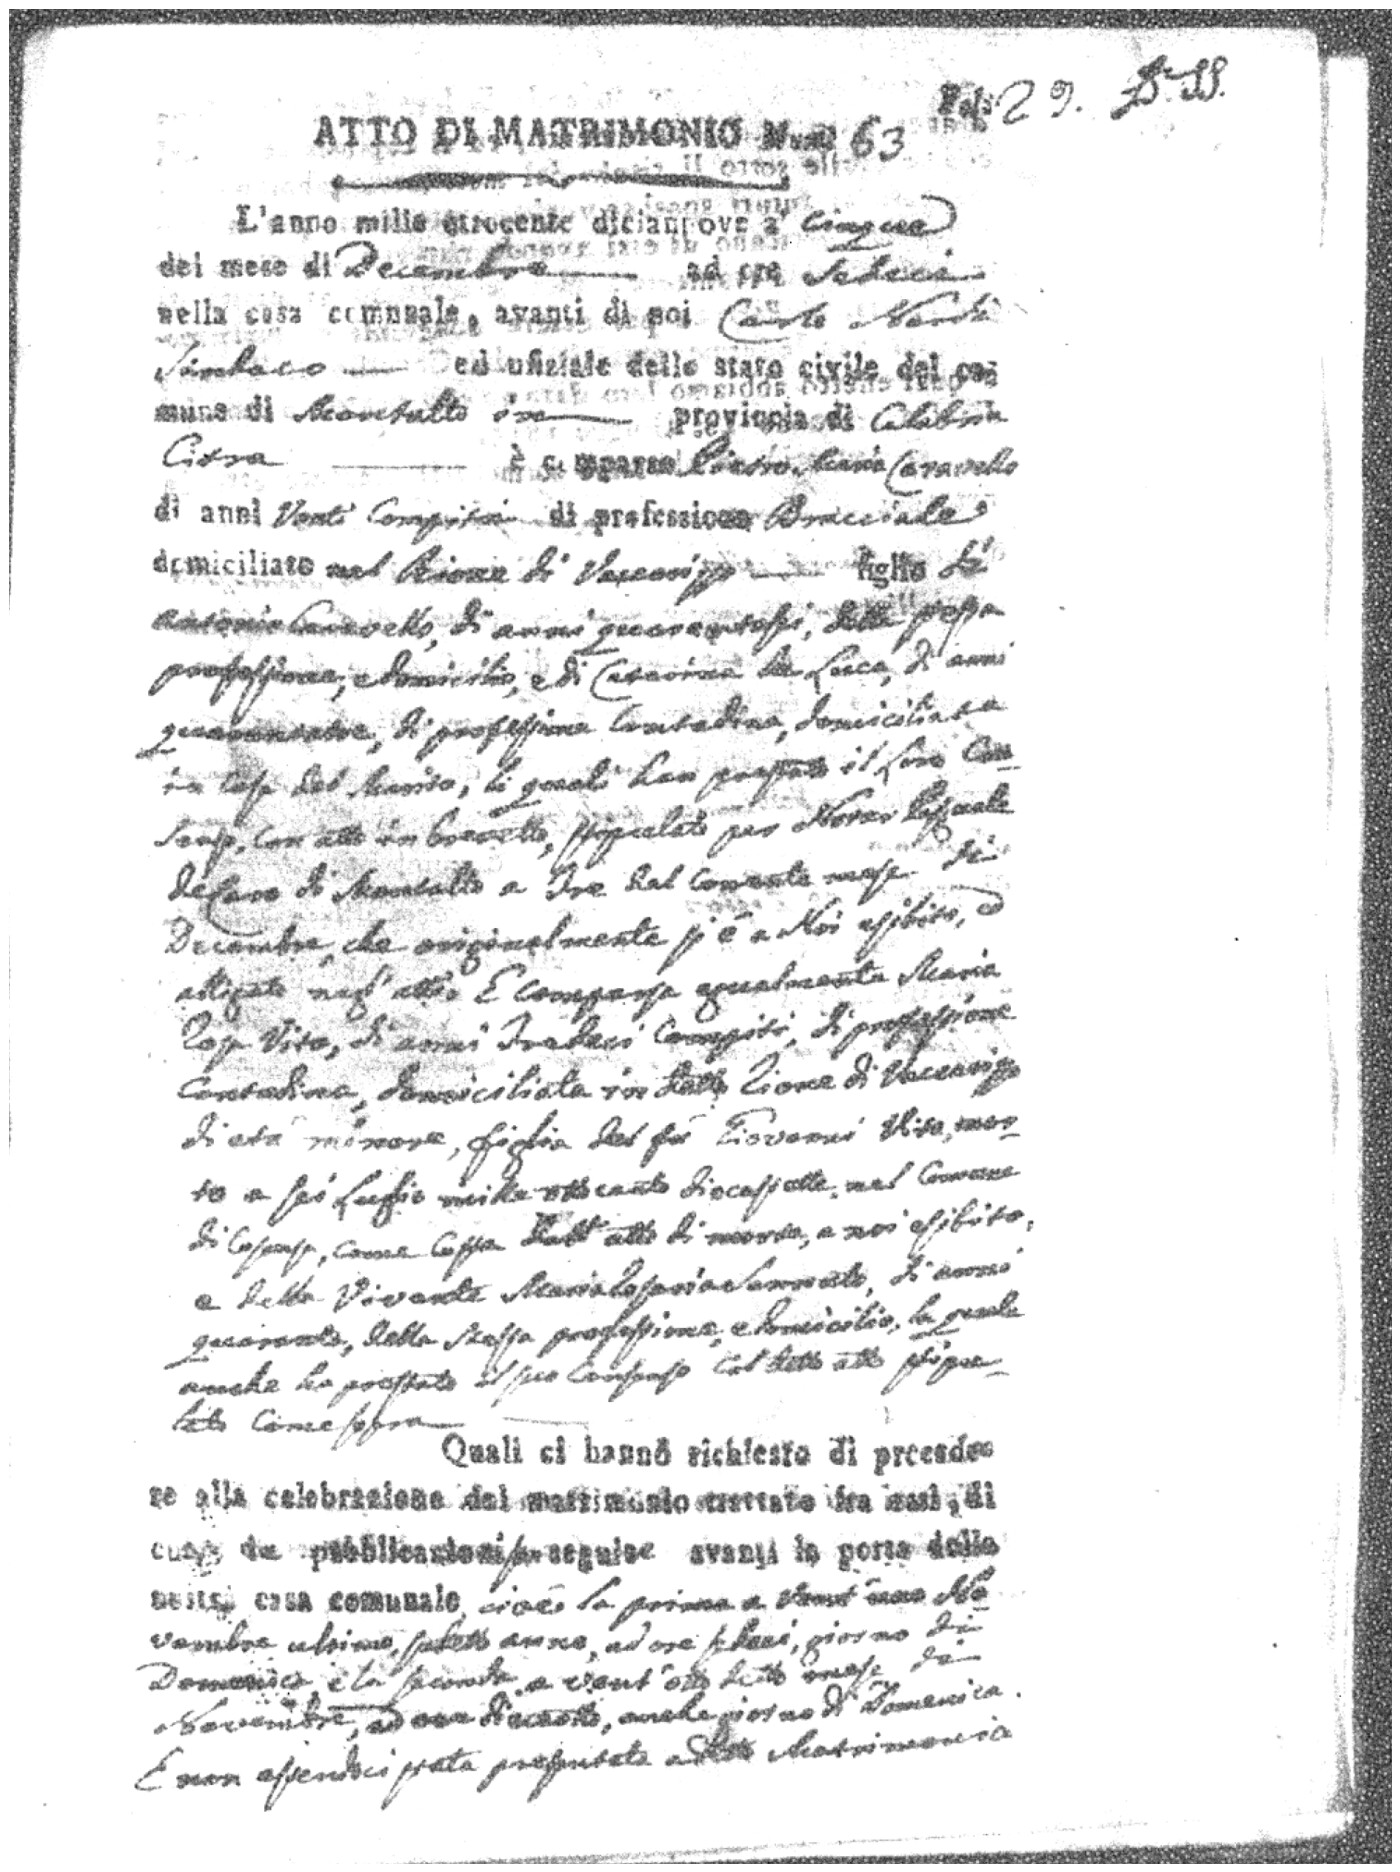 Fol: 29.
ATTO DI MATRIMONIO Num 63
L'anno mille ottocento diciannove a' Cinque
del mese di Decembre ad ore Sedeci
nella casa comunale, avanti di noi Carlo Nardi
Sindaco ed ufiziale dello stato civile del co-
mune di Montalto in provincia di Calabria
Citra è comparso Pietro Maria Caravello
di anni Venti Compiti di professione Bracciale
domiciliato nel Rione di Vaccarizzo figlio di
Antonio Caravello, di anni quarantasei, della stessa
professione, e domicilio, e di Caterina de Luca, di anni
quarantatre, di professione Contadina, domiciliata
in Casa del Marito, li quali han prestato il loro Con-
senso, con atto in brevetto, stipulato per Notar Pasquale
de Caro di Montalto a Tre del corrente mese di
Decembre, che originalmente si è a Noi esibito, ed
alligato negl'atti. E comparsa egualmente Maria
Rosa Vito, di anni Tredeci Compiti, di professione
Contadina, domiciliata in detto Rione di Vaccarizzo
di età minore, figlia del fù Giovanni Vito, mor-
to a sei Luglio mille ottocento diecessette, nel Comune
di Cosenza, come costa dall'atto di morte, a noi esibito,
e della Vivente Maria Rosaria Sannuto, di anni
quaranta, della stessa professione, e domicilio, la quale
anche ha prestato il suo Consenso col detto atto stipu-
lato Come sopra
Quali ci hanno richiesto di procede-
re alla celebrazione del matrimonio trattato fra essi, di
cui le pubblicazioni son seguite avanti la porta della
nostra casa comunale, cioè la prima a vent'uno No-
vembre ultimo, sudetto anno, ad ore sedeci, giorno di
Domenica, e la seconda a vent'otto detto mese di
Novembre, ad ore dieciotto, anche giorno di Domenica.
E non essendoci stata presentata a detto Matrimonio